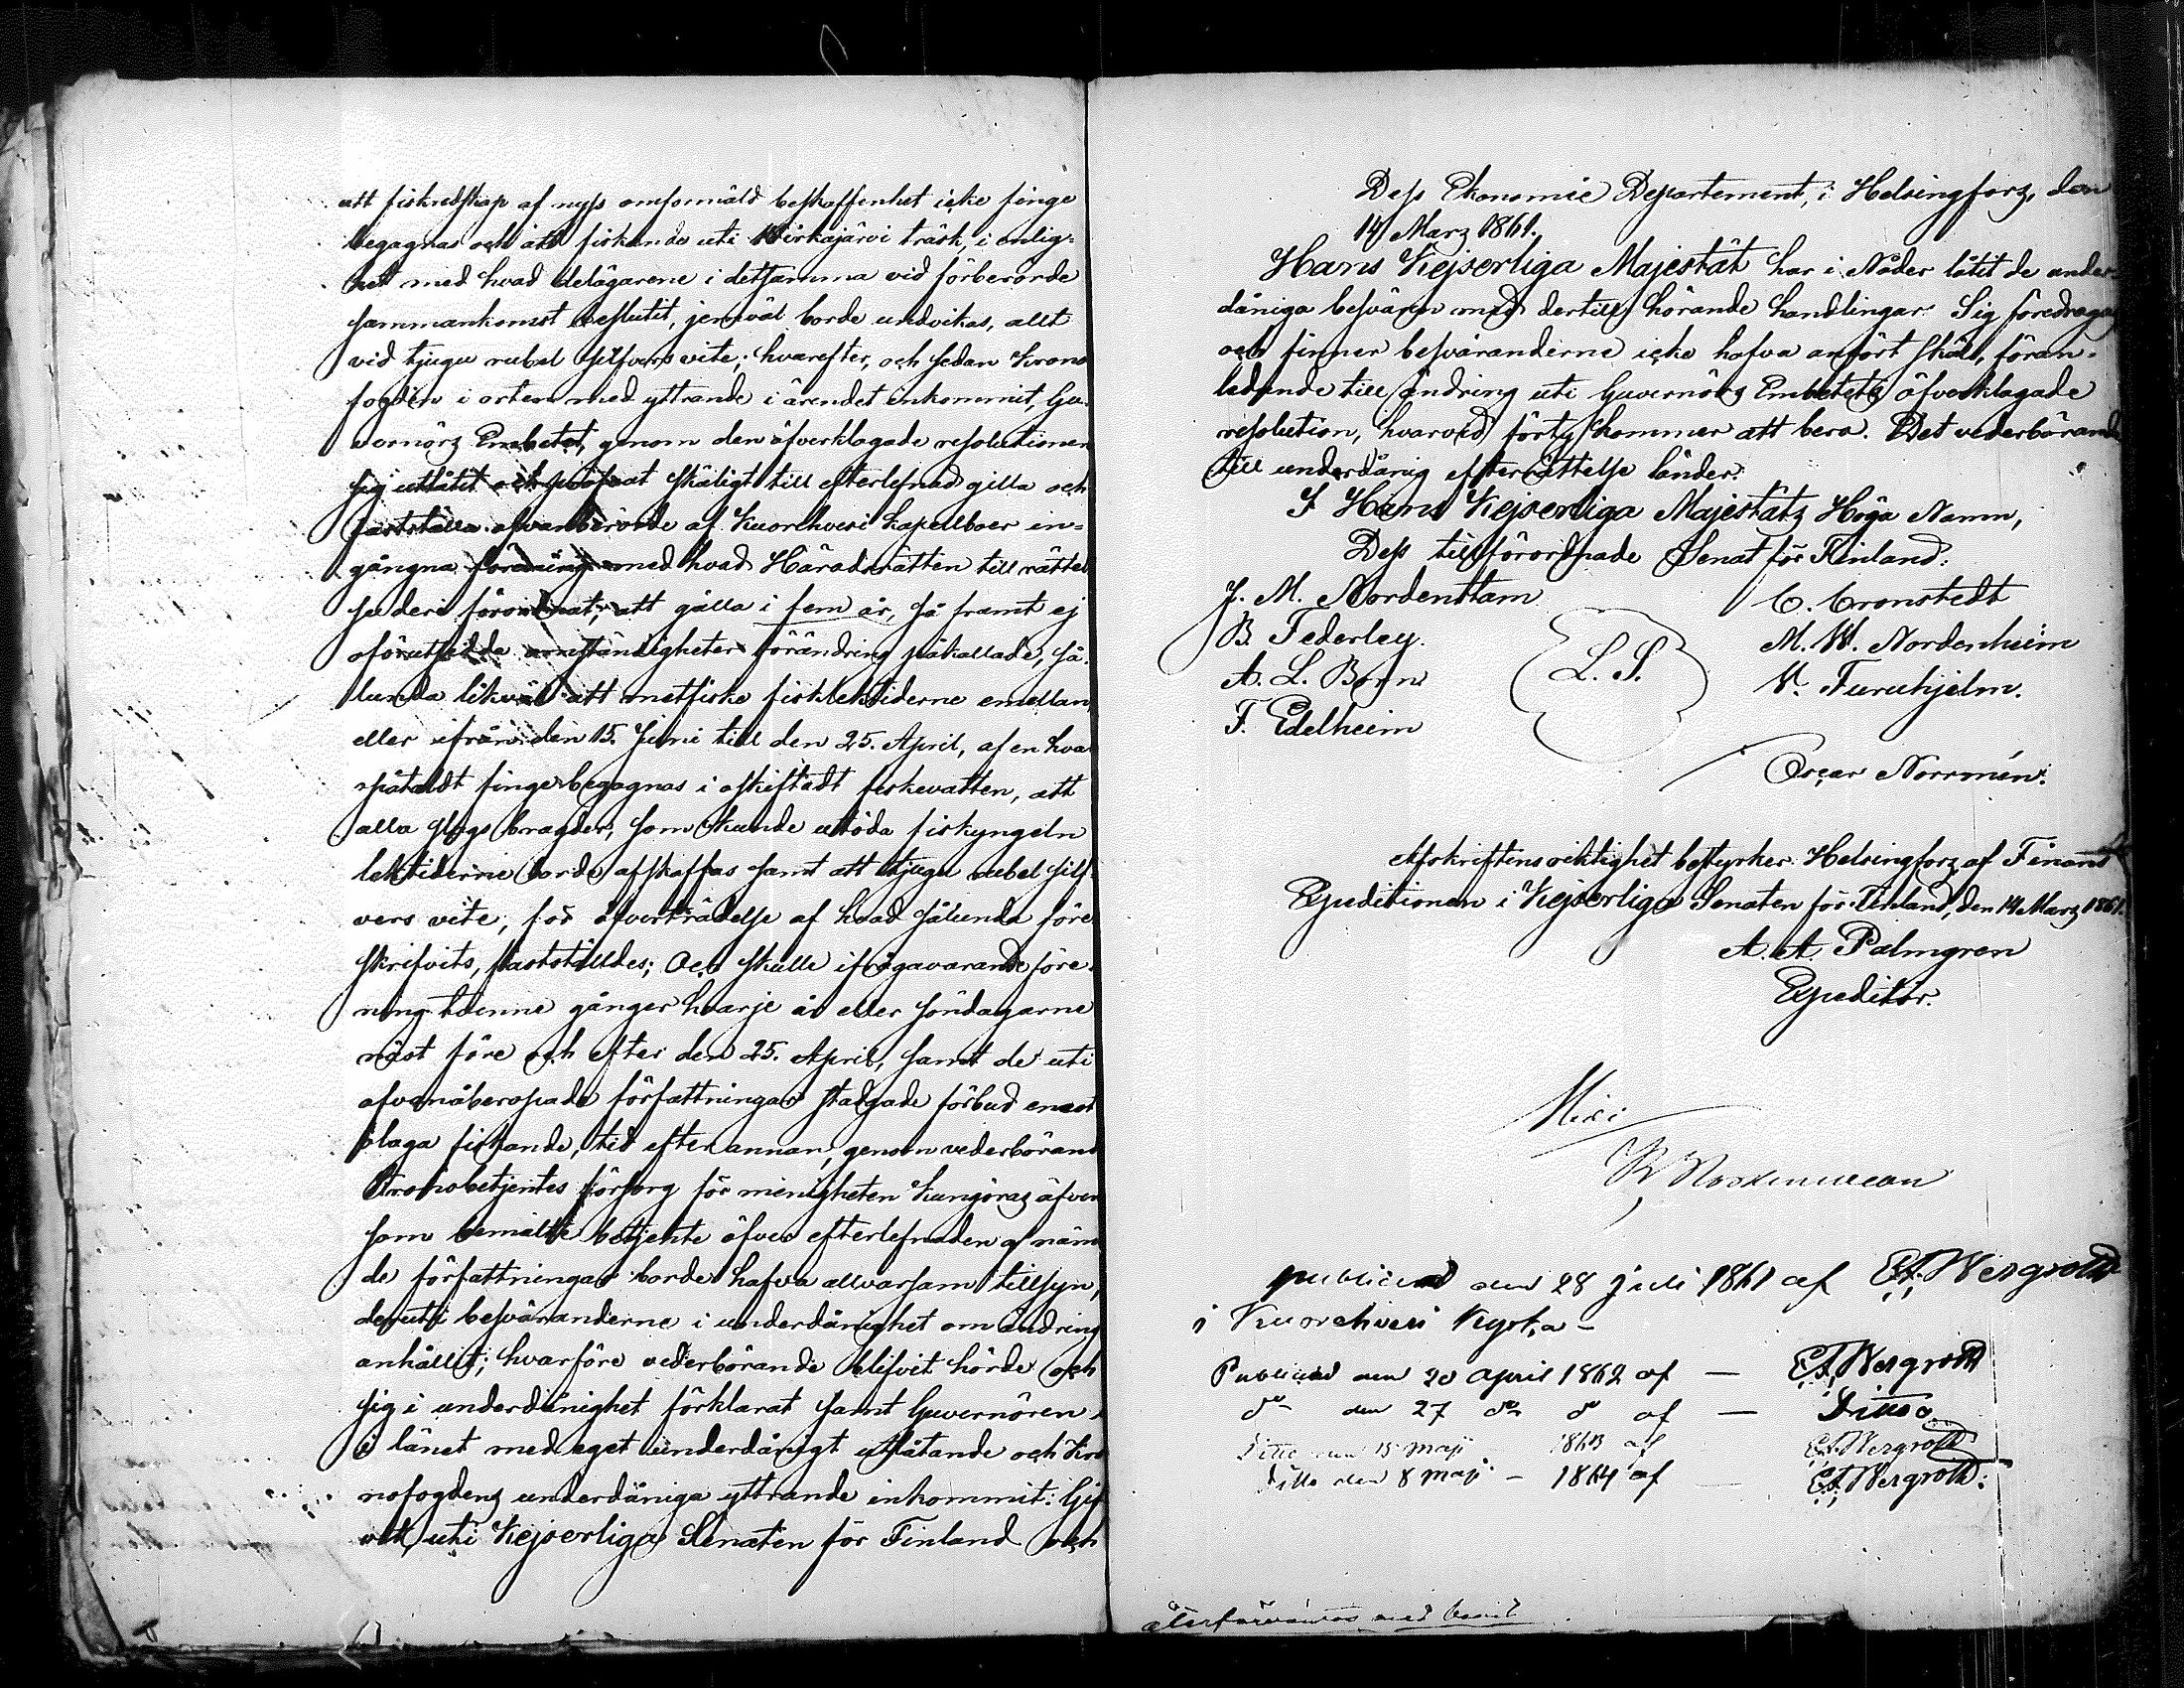 att fiskredskap af nyss omformäld beskaffenhet icke finge
begagnas och att fiskande uti Wirkajärvi träsk, i enlig=
het med hvad delägarene i detsamma vid förberörde
sammankomst beslutit, jemväl borde undvikas, allt
vid tjugu rubel silfvers vite; hvarefter, och sedan Krono
fogden i orten med yttrande i ärendet inkommit, Gu-
vernörs Embetet, genom den öfverklagade resolutionen
sig utlåtit och pröfvat skäligt till efterlefnad gilla och
fastställa ofvanberörde af Kuorehvesi Kapellboer in=
gångna förening med hvad Häradsrätten till rättel
se deri förordnat, att gälla i fem år, så framt ej
oförutsedda omständigheter förändring påkallade, så-
lunda likväl att metfiske fisklektiderne emellan
eller ifrån den 15. Juni till den 25. April, af en hvar
spåtaldt finge begagnas i oskiftadt fiskevatten, att
alla slags bragder, som kunde utöda fiskyngeln
lektiderne borde afskaffas samt att tjugu rubel silf-
vers vite, för öfverträdelse af hvad sålunda före
skrifvits, fastställdes; Och skulle ifrågavarande före-
ning tvenne gånger hvarje år eller söndagarne
näst före och efter den 25. April, samt de uti
ofvanåberopade författningar stadgade förbud emot
olaga fiskande, tid efter annan, genom vederbörand
Kronobetjentes försorg för menigheten kungöras äfven
som bemälte betjente öfver efterlefnaden af näm
de författningar borde hafva allvarsam tillsyn,
deruti besväranderne i underdånighet om ändring
anhållit; hvarföre vederbörande blifvit hörde och
sig i underdånighet förklarat samt Guvernören
i länet med eget underdånigt utlåtande och Kro
nofogdens underdåniga yttrande inkommit: Gif
vet uti Kejserliga Senaten för Finland och
Dess Ekonomie Departement, i Helsingfors, den
14 Mars 1861.
Hans Kejserliga Majestät har i Nåder låtit de under-
dåniga besvären med dertill hörande handlingar Sig föredragas
och finner besväranderne icke hafva anfört skäl, föran-
ledande till ändring uti Guvernörs Embetets öfverklagade
resolution, hvarvid förty kommer att bero. Det vederbörande
till underdånig efterrättelse länder.
I Hans Kejserliga Majestäts Höga Namn,
Dess tillförordnade Senat för Finland:
J. M. Nordenstam C. Cronstedt
B Federley. M. W. Nordenheim
A. L. Born L. S. V. Furuhjelm.
F. Edelheim
Oscar Norrmén.
Afskriftens riktighet bestyrker. Helsingfors, af Finans
Expeditionen i Kejserliga Senaten för Finland, den 14 Mars 1861.
A. A. Palmgren
Expeditör.
publicerad den 28 juli 1861 af E.F. Wergroth
i Kuorehvesi Kyrka -
Publicerad den 20 april 1862 af — E.F. Wergroth
do den 27 do do af — Ditto
Ditto den 15 maji 1863 af E.F. Wergroth
Ditto den 8 maji - 1864 af — E.F. Wergroth.